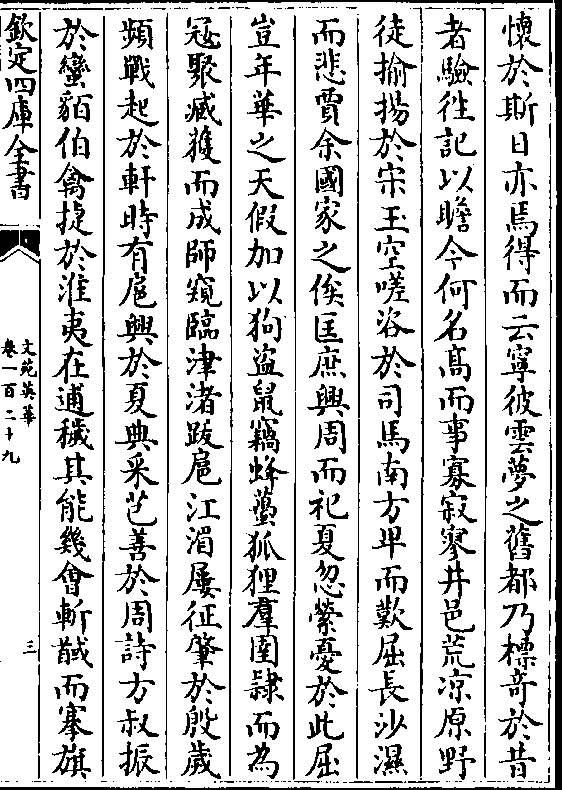 懷於斯日亦焉得而云寧彼雲夢之舊都乃標奇於昔
者驗徃記以瞻今何名髙而事寡寂寥井邑荒凉原野
徒揄揚於宋玉空嗟咨於司馬南方卑而歎屈長沙濕
而悲賈余國家之俟匡庶興周而祀夏忽縈憂於此屈
豈年華之天假加以狗盗鼠竊蜂蠆狐狸羣圉隷而為
冦聚臧獲而成師窺臨津渚跋扈江湄屢征肇於殷歳
頻戰起於軒時有扈興於夏典采芑善於周詩方叔振
於蠻貊伯禽捷於淮夷在逋穢其能幾會斬馘而搴旗
欽定四庫全書
文苑英華
卷一百二十九
三